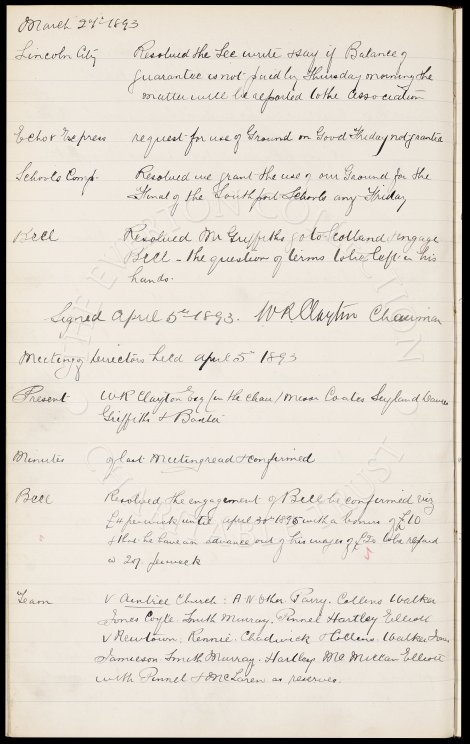 March 29th 1893
Lincoln City Resolved the Sec write & say if Balance of
guarantee is not paid by Thursday morning the
matter will be reported to the Association
Echo & Express request for use of Ground on Good Friday not granted
Schools Comp. Resolved we grant the use of our Ground for the
Final of the Southport Schools any Friday
Bell Resolved Mr Griffiths go to Scotland & engage
Bell - the question of terms to be left in his
hands.
Signed April 5th 1893. WR Clayton Chairman
Meeting of Directors held April 5th 1893
Present WR Clayton Esq (in the chair) Messrs Coates Leyland Davies
Griffiths & Baxter
Minutes of last Meeting read & confirmed
Bell Resolved the engagement of Bell be confirmed viz
£4 per week until April 30th 1895 with a bonus of £10
& that he have an advance out of his wages of £20 to be repaid
@ 20/- per week
Team v Aintree Church: A N Other Parry. Collins Walker
Jones Coyle. Smith Murray. Pinnel Hartley Elliott
v Newtown: Rennie. Chadwick & Collins. Walker Jones
Jamieson Smith Murray. Hartley McMillan Elliott
with Pinnel & McLaren as reserves.
THE EVERTON COLLECTION